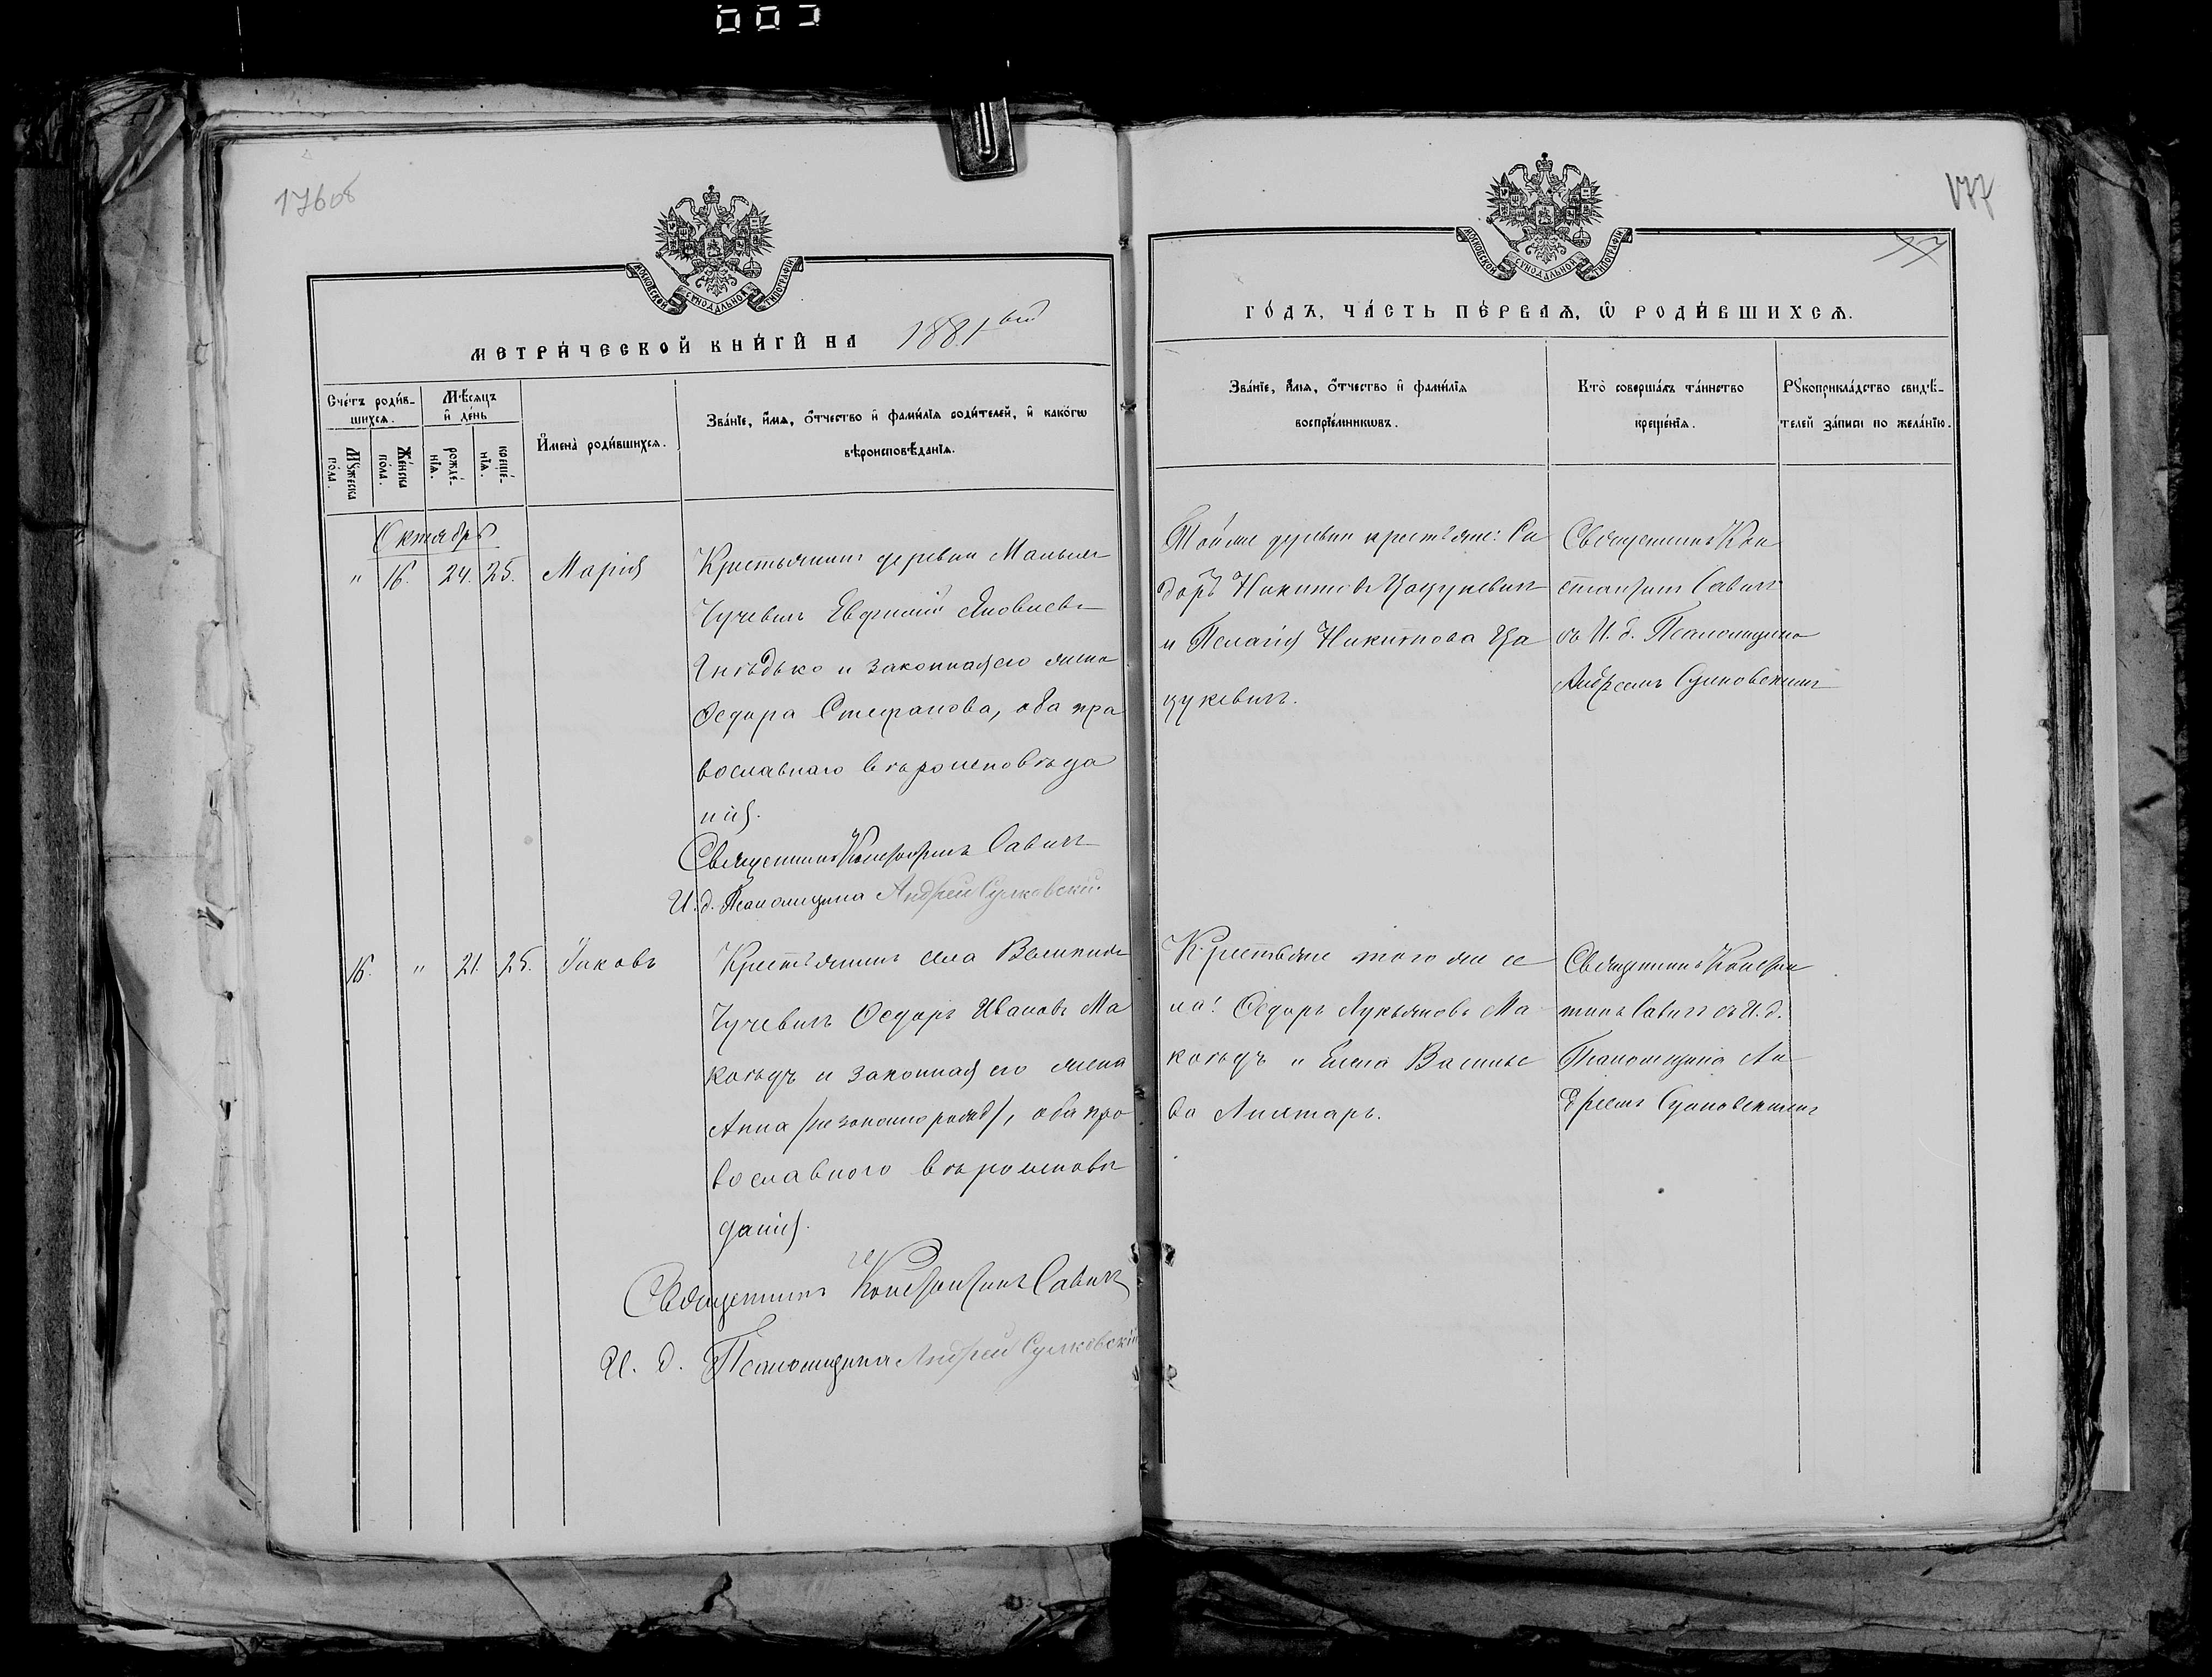 176об
177
МОСКОВСКОЙ СУНОДАЛЬНОЙ ТИПОГРАФІИ
МЕТРИ́ЧЕСКОЙ КНИ́ГИ НА 1881ый
Сче́тъ роди́в-
шихся.
Мѣ́сяцъ
и де́нь
Мꙋ́жеска
по́ла.
Же́нска
по́ла.
рожде́-
нїѧ.
креще́-
нїѧ.
И́мена̀ роди́вшихсѧ.
Зва́нїе, и́мѧ, ѻ҆́тчество и҆ фами́лїѧ роди́телей, и҆ како́гѡ
вѣроисповѣ́данїѧ.
Октябрь
" 16. 24. 25. Марія
Крестьянинъ деревни Малыхъ
Чучевичъ Евгеній Яковлевъ
Гнѣдько и законная его жена
Ѳедора Стефанова, оба пра
вославнаго вѣроисповѣда
нія.
Священникъ Константинъ Савичъ
И. д. Псаломщика Андрей Сулковскій.
16. " 21. 25. Іаковъ
Крестьянинъ села Великихъ
Чучевичъ Ѳедоръ Ивановъ Ма
коѣдъ и законная его жена
Анна /незаконорожд/, оба пра
вославного вѣроисповѣ
данія.
Священникъ Константинъ Савичъ
И. д. Псаломщика Андрей Сулковскій
МОСКОВСКОЙ СУНОДАЛЬНОЙ ТИПОГРАФІИ
ГО́ДЪ, ЧА́СТЬ ПЕ́РВАѦ, Ѿ РОДИ́ВШИХСѦ.
Зва́нїе, и́мѧ, ѻ҆́тчество и҆ фами́лїѧ
воспрїе́мникѡвъ.
Кто̀ соверша́лъ та́инство
креще́нїѧ.
Рꙋкоприкла́дство свидѣ́-
телей за́писи по жела́нїю.
Той же деревни крестьяне: Си
доръ Никитовъ Цацукевичъ
и Пелагія Никитова Ца
цукевичъ.
Священникъ Кон
стантинъ Савичъ
съ И. д. Псаломщика
Андреемъ Сулковскимъ
Крестьяне того же се
ла: Ѳедоръ Лукьяновъ Ма
коѣдъ и Елена Василье
ва Лихтаръ.
Священникъ Констан
тинъ Савичъ съ И. д.
Псаломщика Ан
дреемъ Сулковскимъ